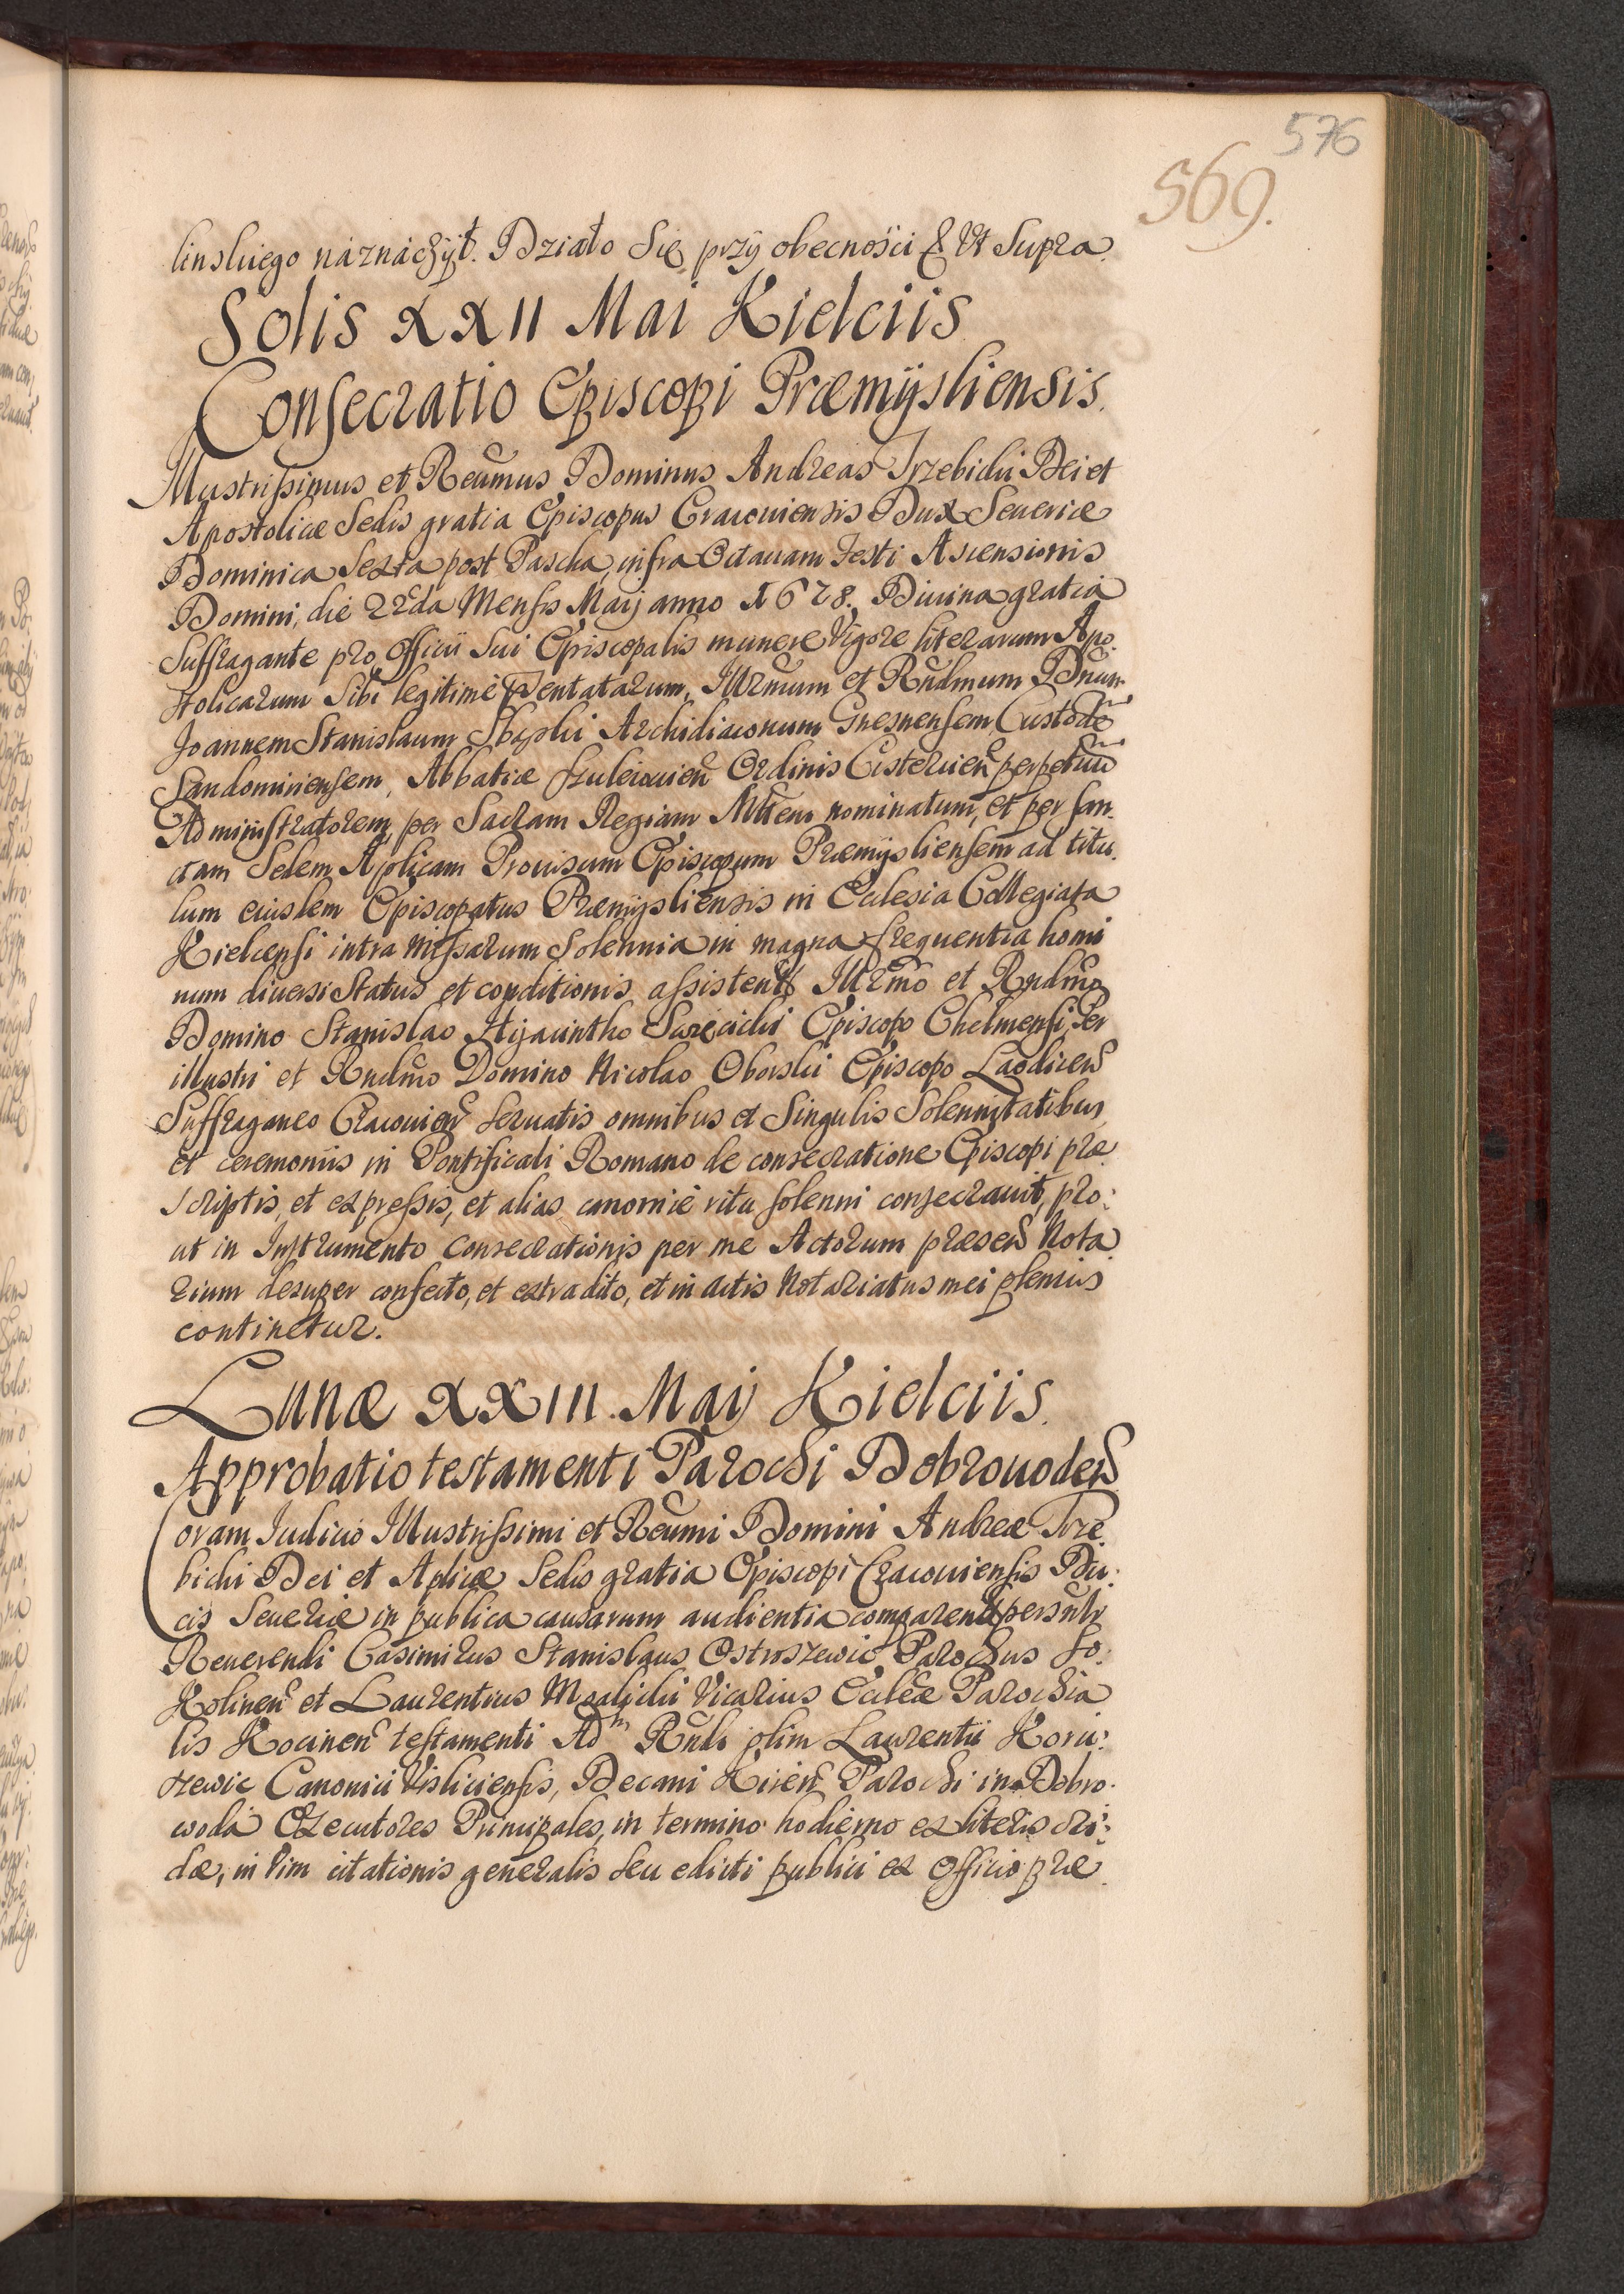 576
569.
linskiego naznaczÿł. Działo się przÿ obecności &c Vt Supra.
Solis XXII Mai Kielciis
Consecratio Episcopi Præmÿsliensis.
Illustrissimus et Reumus Dominus Andreas Trzebicki Dei et
Apostolicæ Sedis gratia Episcopus Cracouiensis Dux Seueriæ
Dominica Sexta post Pascha, infra Octauam Festi Ascensionis
Domini, die 22da Mensis Maij anno 1678. Diuina gratia
Suffragante pro officii sui Episcopalis munere Vigore literarum Apo
stolicarum Sibi legitimè pñtatarum, Illrmum et Rndmum Dnum
Joannem Stanislaum Sbąski Archidiaconum Gnesnensem Custodē
Sandomiriensem, Abbatiæ Suleiouień Ordinis Cistercień perpetuū
Administratorem, per Sacram Regiam Mttem nominatum, et per San
ctam Sedem Aplicam Prouisum Episcopum Præmÿsliensem ad titu
lum eiusdem Episcopatus Præmÿsliensis in Ecclesia Collegiata
Kielcensi intra missarum Solennia in magna frequentia homi
num diuersi Status et conditionis, assistent Illrmo et Rndmo
Domino Stanislao Hÿacintho Swięcicki Episcopo Chelmensi, Per
illustri et Rndmo Domino Nicolao Oborski Episcopo Laodiceń
Suffraganeo Cracouień Seruatis omnibus et Singulis Solennitatibus
et ceremoniis in Pontificali Romano de consecratione Episcopi præ
scriptis, et expressis, et alias canonicè ritu solenni consecrauit, pro:
ut in Instrumento consecrationis per me Actorum præseń Nota
rium desuper confecto, et extradito, et in actis Notariatus mei plenius
continetur.
Lunæ XXIII. Maij Kielciis.
Approbatio testamenti Parochi Dobrouodeń
Coram Iudicio Illustrissimi et Reumi Domini Andreæ Trze
bicki Dei et Aplicæ Sedis gratia Episcopi Cracouiensis Du:
cis Seueriæ in publica causarum audientia comparent persnlr
Reuerendi Casimirus Stanislaus Ostroszewic Parochus So:
kolineń et Laurentius Vicarius Eccleæ Parochia
lis Kocineń testamenti Adm Rndi olim Laurentii Koru:
szewic Canonici Visliciensis, Decani Parochi in Dobro
woda Executores Principales, in termino hodierno ex literis cri:
dæ, in vim citationis generalis seu edicti publici ex officio præ